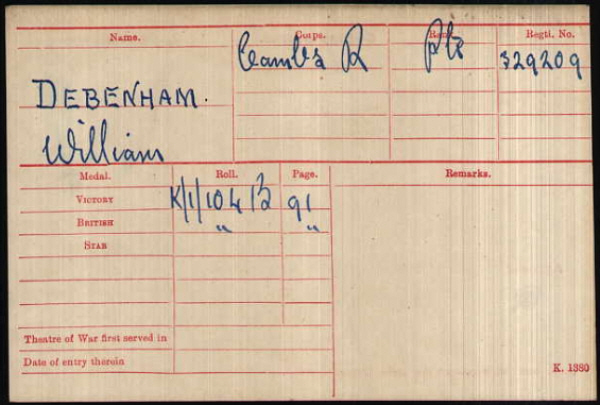 Name. Corps. Rank. Regtl. No.
Cambs R Pte 329209
DEBENHAM.
William
Medal. Roll. Page. Remarks.
VICTORY K/1/104 B 91
BRITISH " "
STAR
Theatre of War first served in
Date of entry therein
K. 1380